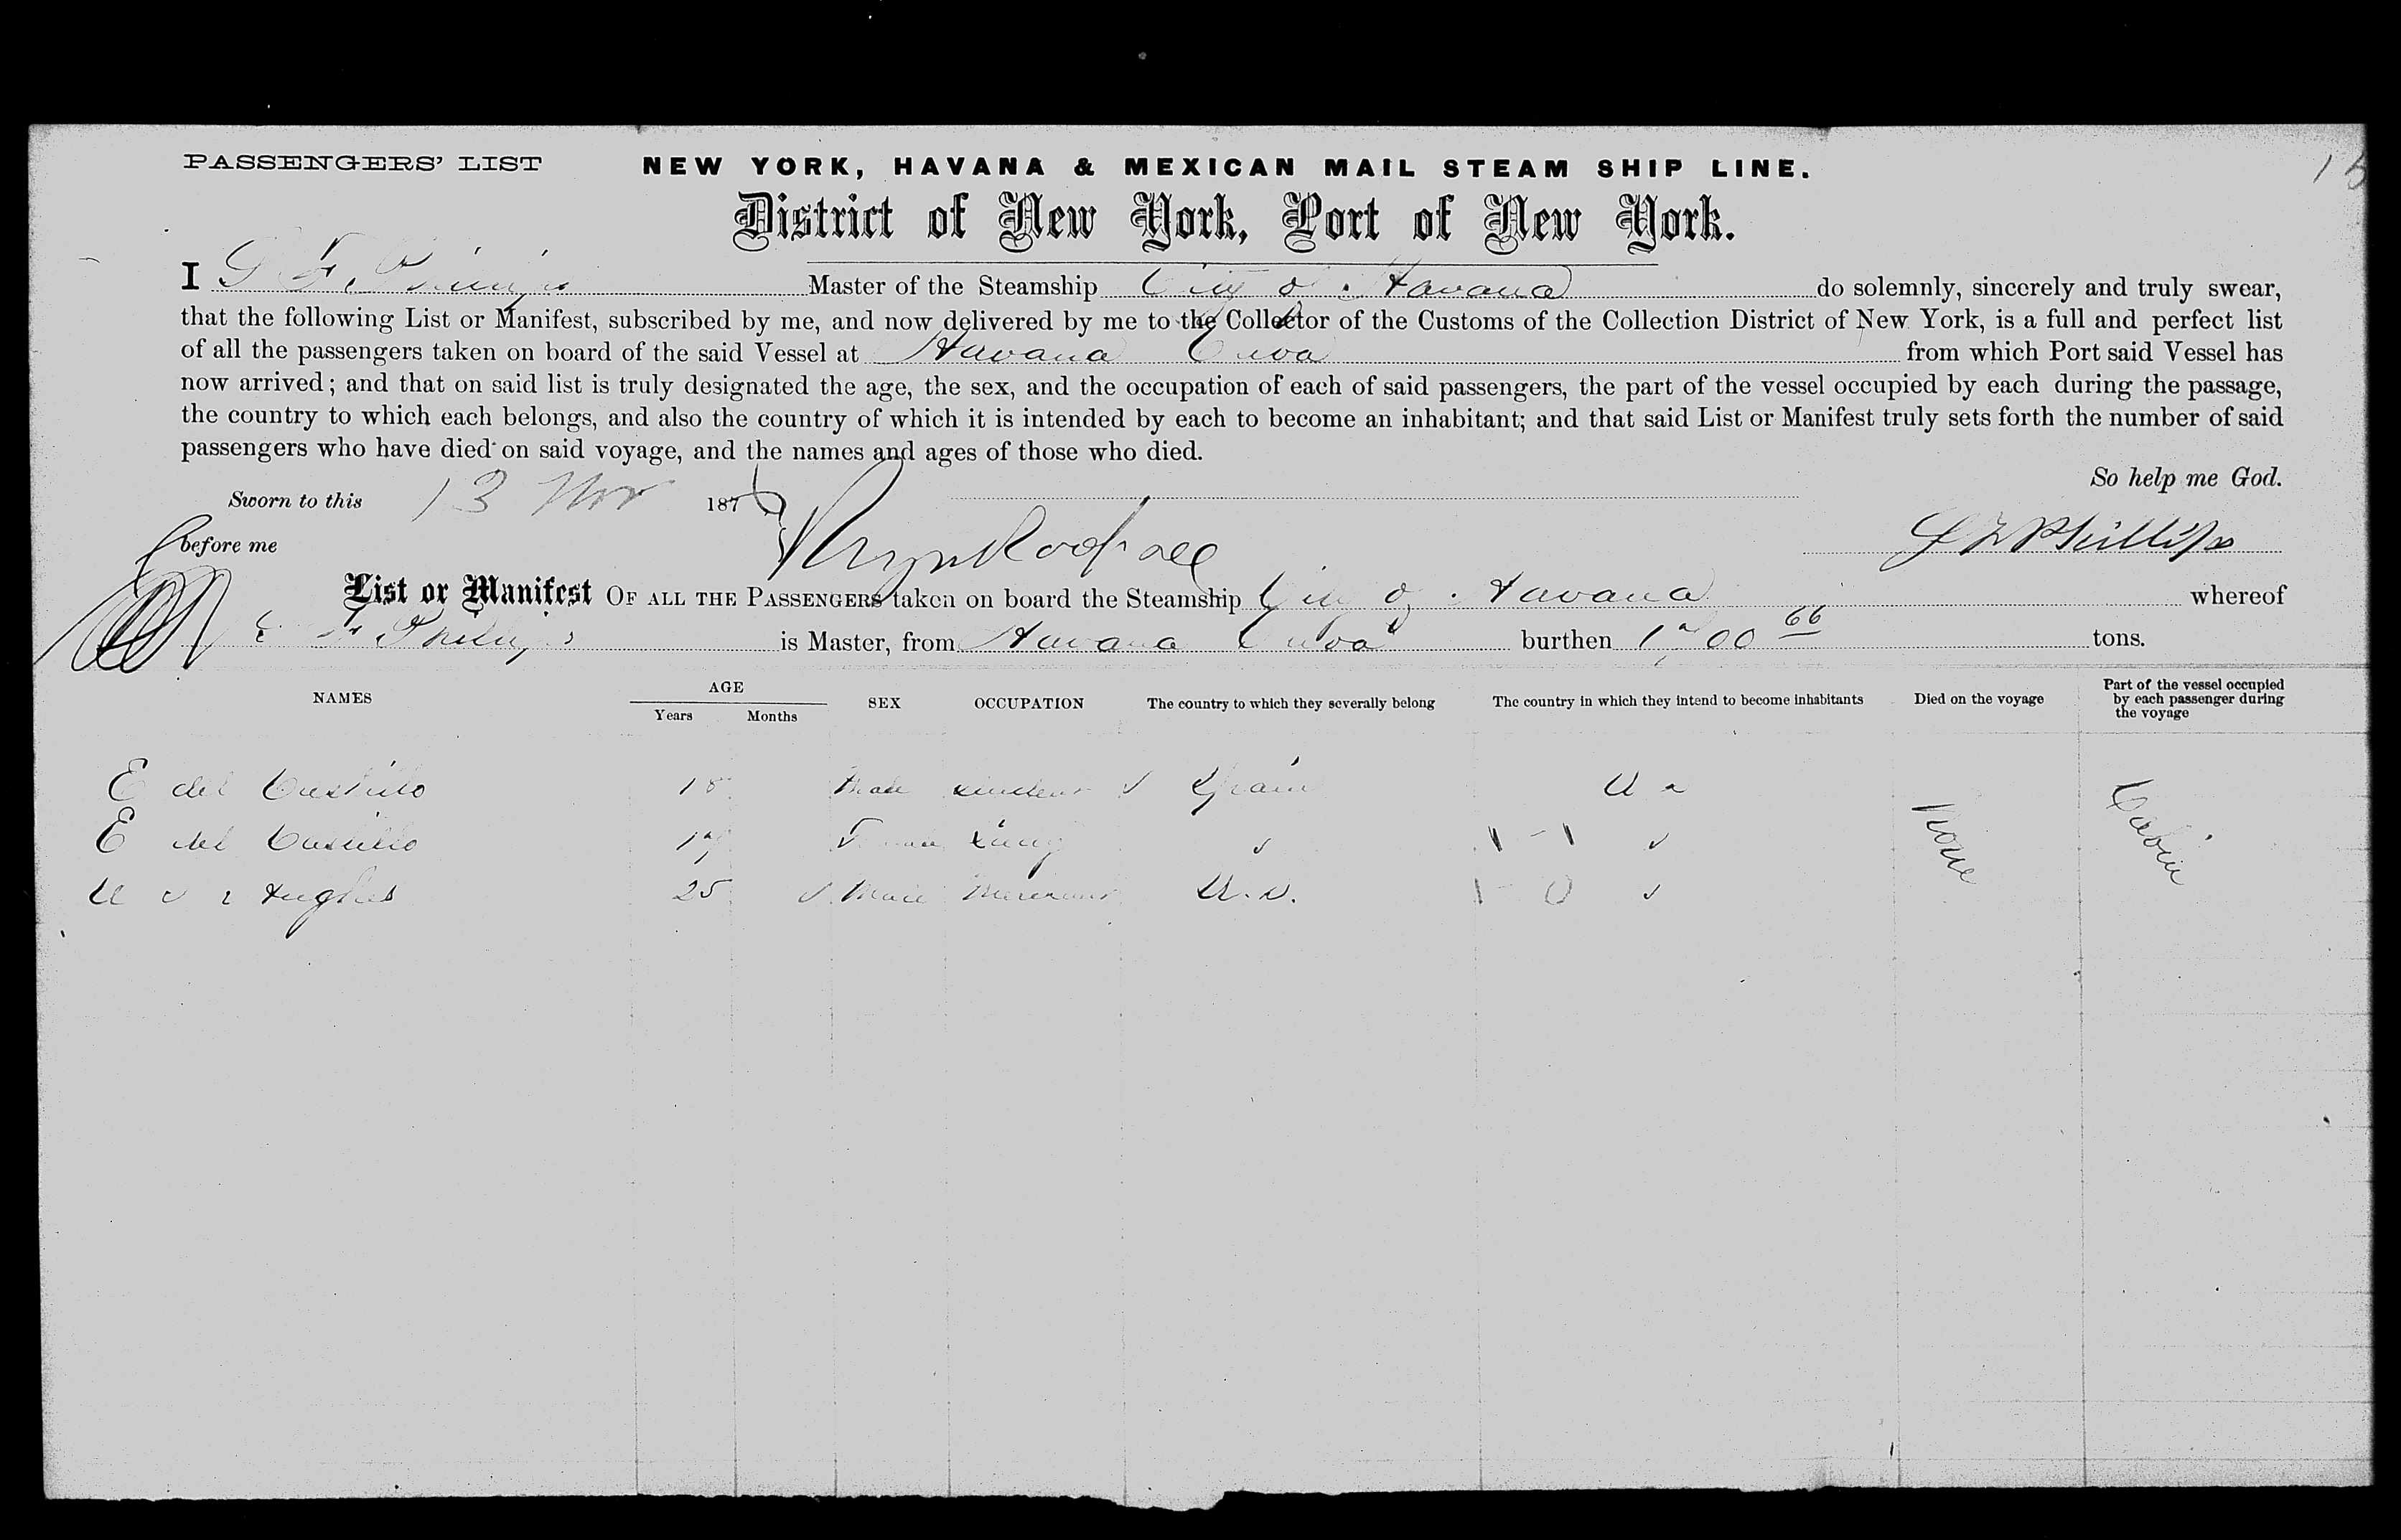 PASSENGERS' LIST NEW YORK, HAVANA & MEXICAN MAIL STEAM SHIP LINE.
District of New York, Port of New York.
I Master of the Steamship City of Havana do solemnly, sincerely and truly swear,
that the following List or Manifest, subscribed by me, and now delivered by me to the Collector of the Customs of the Collection District of New York, is a full and perfect list
of all the passengers taken on board of the said Vessel at Havana Cuba from which Port said Vessel has
now arrived; and that on said list is truly designated the age, the sex, and the occupation of each of said passengers, the part of the vessel occupied by each during the passage,
the country to which each belongs, and also the country of which it is intended by each to become an inhabitant; and that said List or Manifest truly sets forth the number of said
passengers who have died on said voyage, and the names and ages of those who died.
So help me God.
Sworn to this 13 Nov 1876
before me Phillips
List or Manifest OF ALL THE PASSENGERS taken on board the Steamship City of Havana whereof
F Phillips is Master, from Havana Cuba burthen tons.
NAMES AGE Years Months SEX OCCUPATION The country to which they severally belong The country in which they intend to become inhabitants Died on the voyage Part of the vessel occupied by each passenger during the voyage
E del Castillo 18 Male Student Spain
E del Castillo 17 Female
Hughes 25 Male Merchant U.S.
None
Cabin